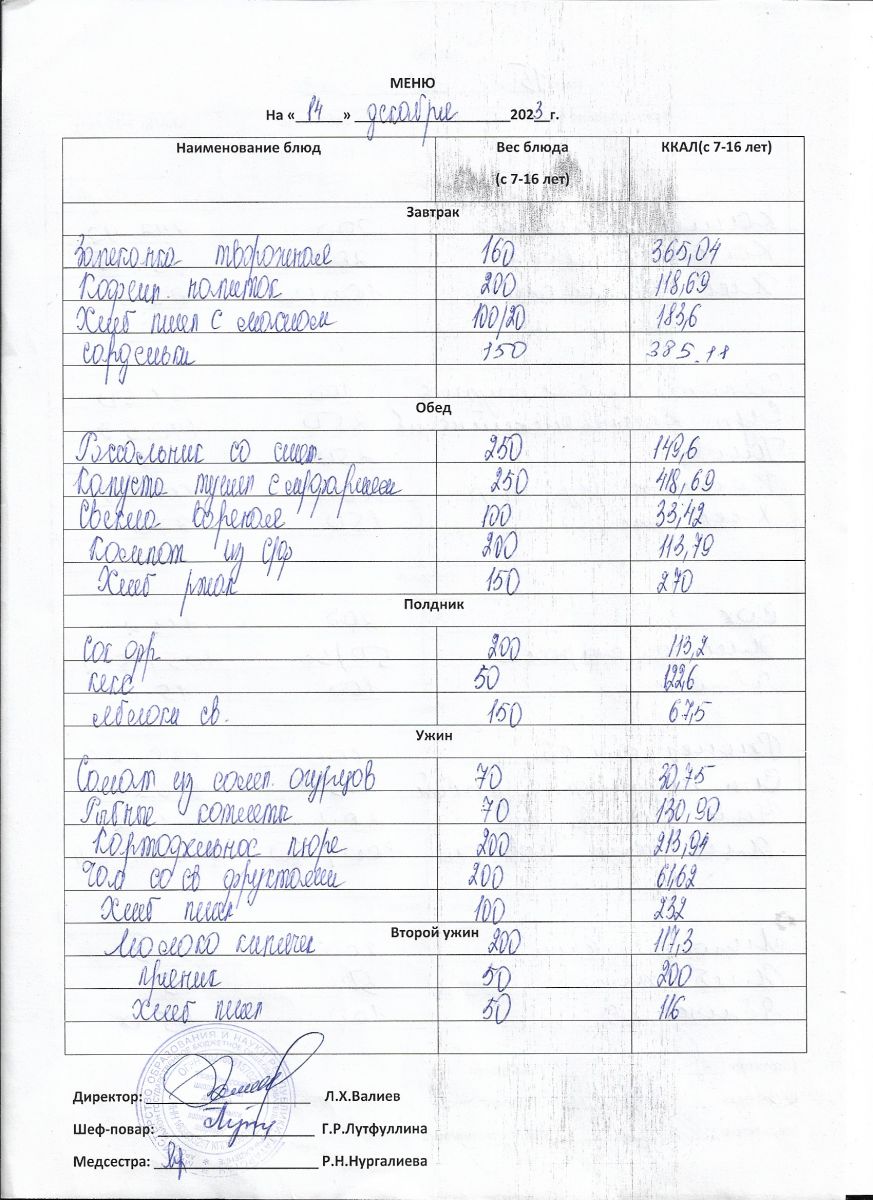 МЕНЮ
На « 14 » декабря 2023 г.
Наименование блюд Вес блюда (с 7-16 лет) ККАЛ(с 7-16 лет)
Завтрак
Запеканка творожная 160 365,04
Кофейн. напиток 200 118,69
Хлеб пшен с маслом 100/20 183,6
сардельки 150 385.11
Обед
Рассольник со смет. 250 149,6
Капуста тушен с 250 418,69
Свекла вареная 100 33,42
Компот из с/ф 200 113,79
Хлеб ржан 150 270
Полдник
Сок фр 200 113,2
кекс 50 122,6
яблоки св. 150 67,5
Ужин
Салат из солен. огурцов 70 30,75
Рыбные котлеты 70 130,90
Картофельное пюре 200 213,94
Чай со св фруктами 200 61,62
Хлеб пшен 100 232
Второй ужин
Молоко кипяче 200 117,3
пряник 50 200
Хлеб пшен 50 116
Директор: Л.Х.Валиев
Шеф-повар: Г.Р.Лутфуллина
Медсестра: Р.Н.Нургалиева